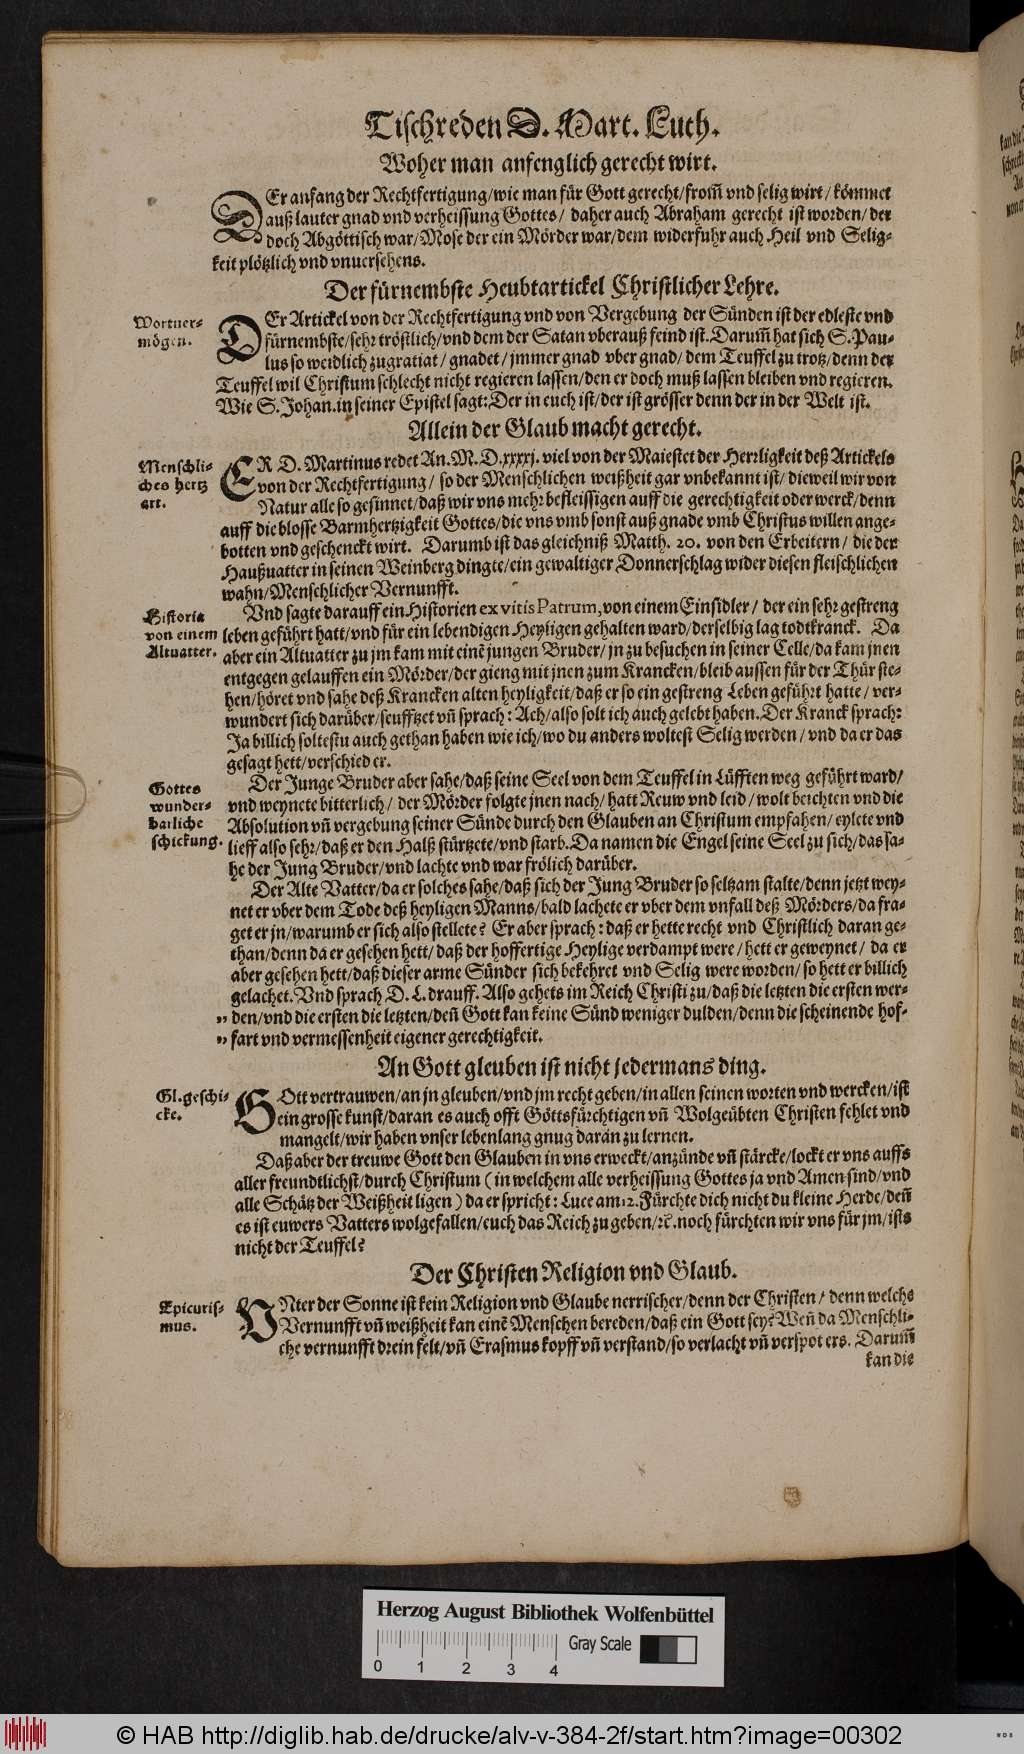 Tischreden D. Mart. Luth.
Woher man anfenglich gerecht wirt.
DEr anfang der Rechtfertigung/wie man für Gott gerecht/from̃ vnd selig wirt/kömmet
auß lauter gnad vnd verheissung Gottes/ daher auch Abraham gerecht ist worden/ der
doch Abgöttisch war/Mose der ein Mörder war/dem widerfuhr auch Heil vnd Selig-
keit plötzlich vnd vnuersehens.
Der fürnembste Heubtartickel Christlicher Lehre.
Wortuer-
mögen.
DEr Artickel von der Rechtfertigung vnd von Vergebung der Sünden ist der edleste vnd
fürnembste/sehr tröstlich/vnd dem der Satan vberauß feind ist. Darum̃ hat sich S. Pau-
lus so weidlich zugratiat/ gnadet/ jmmer gnad vber gnad/ dem Teuffel zu trotz/denn der
Teuffel wil Christum schlecht nicht regieren lassen/den er doch muß lassen bleiben vnd regieren.
Wie S. Johan. in seiner Epistel sagt: Der in euch ist/der ist grösser denn der in der Welt ist.
Allein der Glaub macht gerecht.
Menschli-
ches hertz
art.
ER D. Martinus redet An. M. D. xxxxj. viel von der Maiestet der Herrligkeit deß Artickels
von der Rechtfertigung/ so der Menschlichen weißheit gar vnbekannt ist/ dieweil wir von
Natur alle so gesinnet/daß wir vns mehr befleissigen auff die gerechtigkeit oder werck/denn
auff die blosse Barmhertzigkeit Gottes/die vns vmb sonst auß gnade vmb Christus willen ange-
botten vnd geschenckt wirt. Darumb ist das gleichniß Matth. 20. von den Erbeitern/ die der
Haußuatter in seinen Weinberg dingte/ein gewaltiger Donnerschlag wider diesen fleischlichen
wahn/Menschlicher Vernunfft.
Historia
von einem
Altuatter.
Vnd sagte darauff ein Historien ex vitis Patrum, von einem Einsidler/ der ein sehr gestreng
leben geführt hatt/vnd für ein lebendigen Heyligen gehalten ward/derselbig lag todtkranck. Da
aber ein Altuatter zu jm kam mit einẽ jungen Bruder/ jn zu besuchen in seiner Celle/da kam jnen
entgegen gelauffen ein Mörder/der gieng mit jnen zum Krancken/bleib aussen für der Thür ste-
hen/höret vnd sahe deß Krancken alten heyligkeit/daß er so ein gestreng Leben geführt hatte/ ver-
wundert sich darüber/seufftzet vñ sprach: Ach/also solt ich auch gelebt haben. Der Kranck sprach:
Ja billich soltestu auch gethan haben wie ich/wo du anders woltest Selig werden/ vnd da er das
gesagt hett/verschied er.
Gottes
wunder-
barliche
schickung.
Der Junge Bruder aber sahe/daß seine Seel von dem Teuffel in Lüfften weg geführt ward/
vnd weynete bitterlich/ der Mörder folgte jnen nach/ hatt Reuw vnd leid/ wolt beichten vnd die
Absolution vñ vergebung seiner Sünde durch den Glauben an Christum empfahen/ eylete vnd
lieff also sehr/daß er den Halß stürtzete/vnd starb. Da namen die Engel seine Seel zu sich/das sa-
he der Jung Bruder/vnd lachte vnd war frölich darüber.
Der Alte Vatter/da er solches sahe/daß sich der Jung Bruder so seltzam stalte/denn jetzt wey-
net er vber dem Tode deß heyligen Manns/bald lachete er vber dem vnfall deß Mörders/da fra-
get er jn/warumb er sich also stellete? Er aber sprach: daß er hette recht vnd Christlich daran ge-
than/denn da er gesehen hett/ daß der hoffertige Heylige verdampt were/ hett er geweynet/ da er
aber gesehen hett/daß dieser arme Sünder sich bekehret vnd Selig were worden/ so hett er billich
gelachet. Vnd sprach D. L. drauff. Also gehets im Reich Christi zu/daß die letzten die ersten wer-
„ den/vnd die ersten die letzten/deñ Gott kan keine Sünd weniger dulden/denn die scheinende hof-
„ fart vnd vermessenheit eigener gerechtigkeit.
An Gott gleuben ist nicht jedermans ding.
Gl. geschi-
cke.
GOtt vertrauwen/an jn gleuben/vnd jm recht geben/in allen seinen worten vnd wercken/ist
ein grosse kunst/daran es auch offt Göttsfürchtigen vñ Wolgeübten Christen fehlet vnd
mangelt/wir haben vnser lebenlang gnug daran zu lernen.
Daß aber der treuwe Gott den Glauben in vns erweckt/anzünde vñ stärcke/lockt er vns auffs
aller freundtlichst/durch Christum (in welchem alle verheissung Gottes ja vnd Amen sind/vnd
alle Schätz der Weißheit ligen) da er spricht: Luce am 12. Fürchte dich nicht du kleine Herde/deñ
es ist euwers Vatters wolgefallen/euch das Reich zu geben/ꝛc̃. noch fürchten wir vns für jm/ists
nicht der Teuffel?
Der Christen Religion vnd Glaub.
Epicuris-
mus.
VNter der Sonne ist kein Religion vnd Glaube nerrischer/denn der Christen/ denn welche
Vernunfft vñ weißheit kan einẽ Menschen bereden/daß ein Gott sey? Weñ da Menschli-
che vernunfft drein felt/vñ Erasmus kopff vñ verstand/so verlacht vñ verspot ers. Darum̃
kan die
Herzog August Bibliothek Wolfenbüttel
Gray Scale
0 1 2 3 4
© HAB http://diglib.hab.de/drucke/alv-v-384-2f/start.htm?image=00302